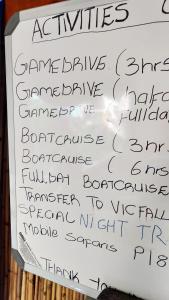 ACTIVITIES
GAMEDRIVE (3hrs
GAMEDRIVE (halfd
GAMEDRIVE fullda
BOATCRUISE ( 3hr
BOATCRUISE ( 6hrs
FULLDAY BOATCRUISE
TRANSFER TO VICFALL
SPECIAL NIGHT TR
Mobile Safaris P18
THANK